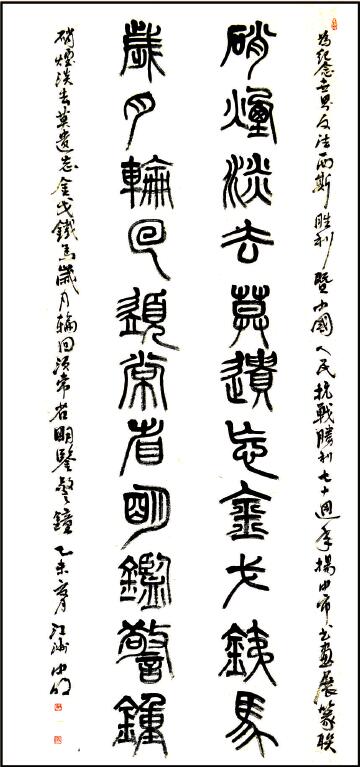 为纪念世界反法西斯胜利暨中國人民抗戰勝利七十週年揚中市书畫展篆联
硝煙淡去莫遺忘金戈銕馬
歲月輪回須常省明鑑警鐘
硝煙淡去莫遺忘金戈鐵馬歲月輪回須常省明鑒警鐘 乙未夏月江洲